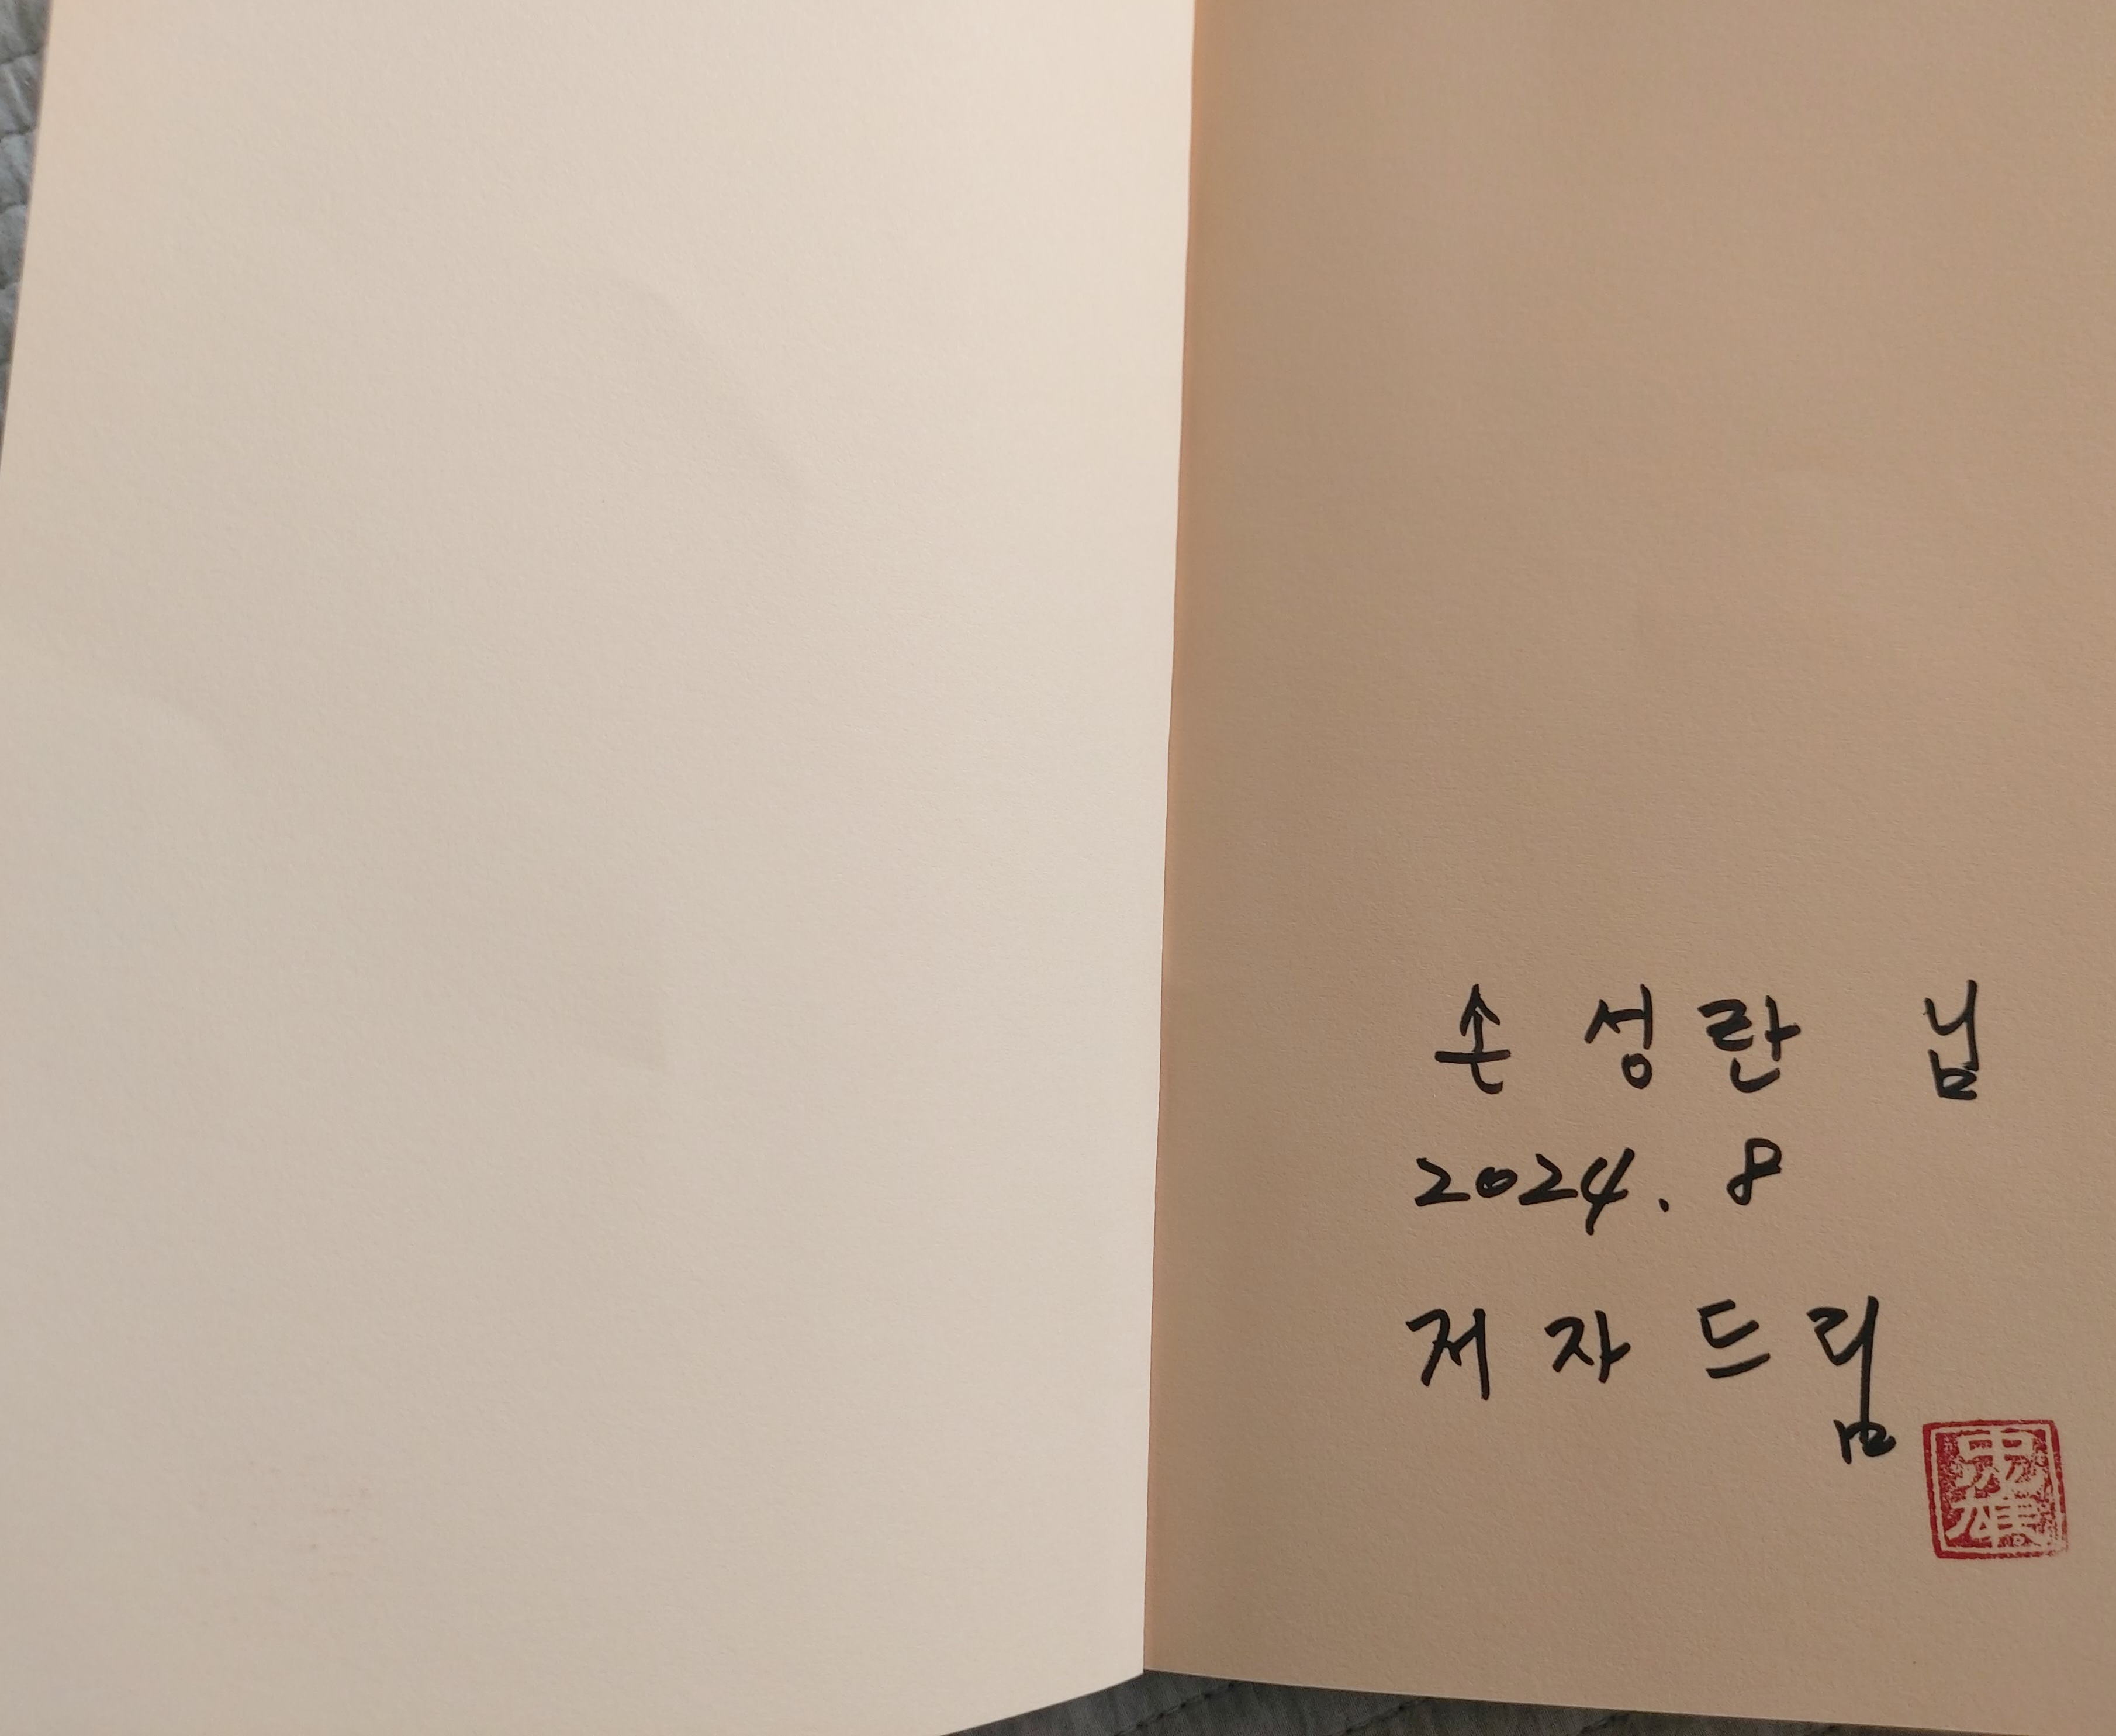 손 성 란 님
2024. 8
저 자 드 림